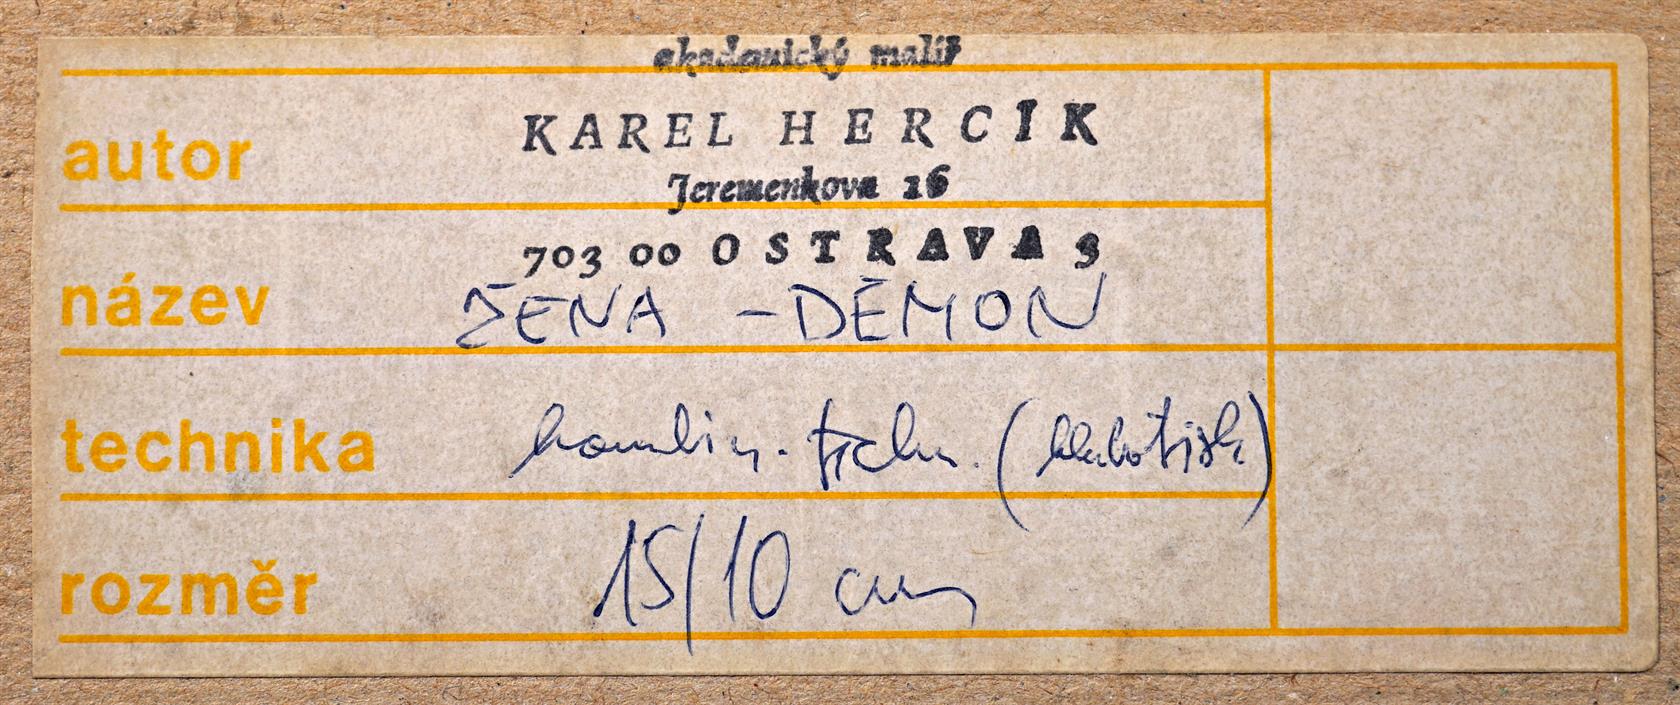 akademický malíř
autor KAREL HERCÍK
Jeremenkova 16
703 00 OSTRAVA 3
název ŽENA - DÉMON
technika kombin. techn. (hlubotisk)
rozměr 15/10 cm